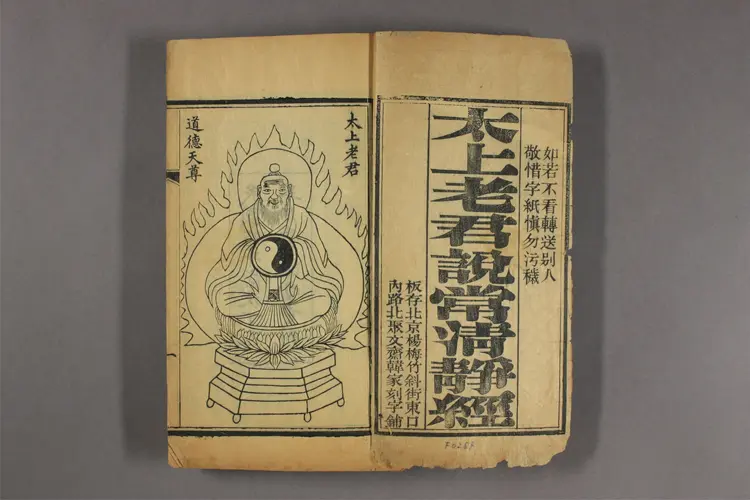 如若不看轉送別人
敬惜字紙慎勿污穢
太上老君說常清靜經
板存北京楊梅竹斜街東口
內路北聚文齋韓家刻字鋪
太上老君
道德天尊